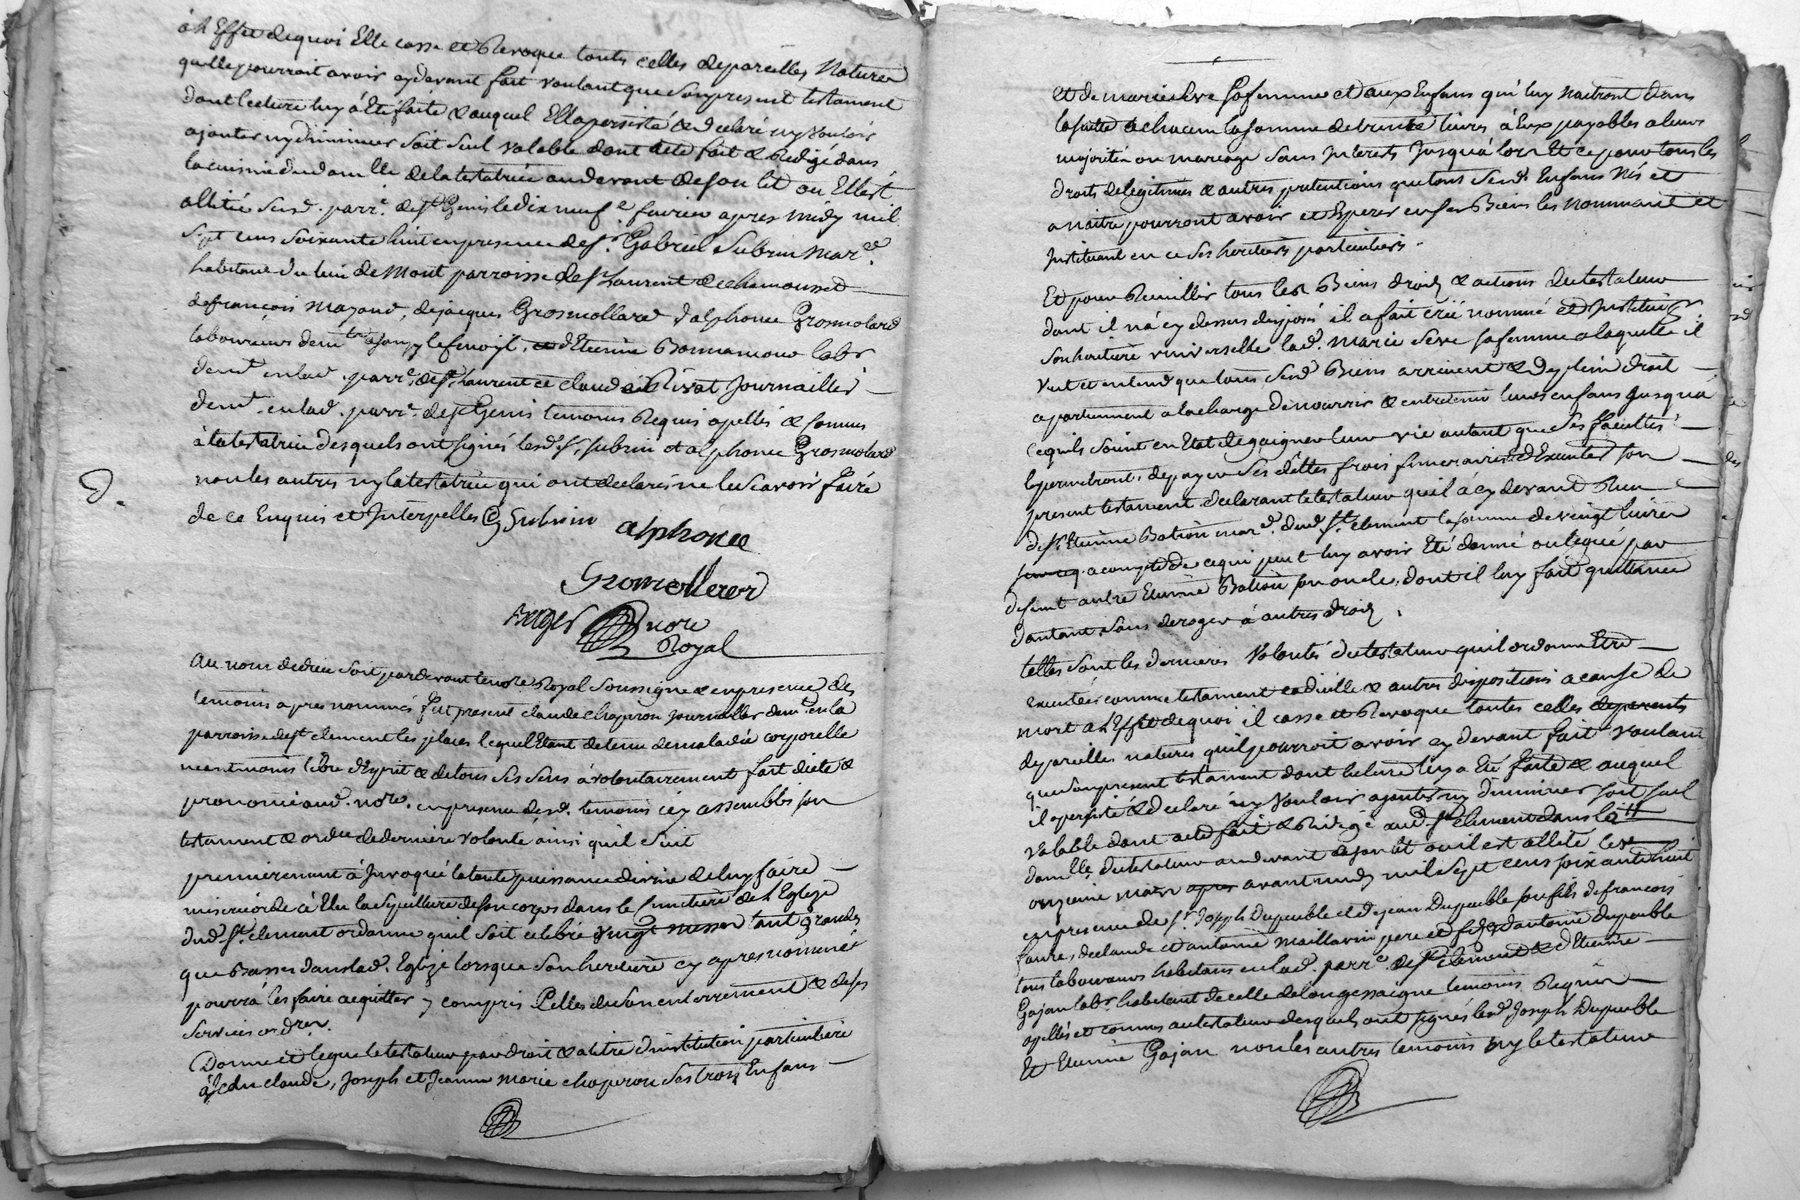 à l Effet dequoi Elle casse et Revoque toutes celles depareilles Natures
quelle pourroit avoir cydevant fait voulant que son present testament
dont lecture luy à Eté faite & auquel Ella persisté & declaré ny vouloir
ajouter ny diminuer soit seul valable dont acte fait & Redigé dans
la cuisine du dom lle de la testatrice audevant de son lit ou Ellest
allitée susd. parr.e de st Genis le dix neuf e. fevrier apres midy mil
sept cens soixante huit en presence de sr. Gabriel Subrin mar.
habitant du lieu de Mont parroisse de st Laurent de chamousset
de françois mazaud, de jacques Grosmollard d alphonce Grosmolard
laboureurs dem.ts a jony le fenoyl, d Etienne Bonnamour labr
dem.t en lad. parr.e de st Laurent et claude Rivat Journaillié
dem.t en lad. parr.e de st Genis temoins Requis apellés & connus
à la testatrice desquels ont signés lesd. Sr. Subrin et alphonce Grosmolard
non les autres ny la testatrice qui ont declarés ne le scavoir faire
de ce Enquis et Interpellés Subrin alphonce
D.
Gromollerd
Auger nore
Royal
Au nom de dieu soit, pardevant le nore Royal soussigné & en presence des
temoins apres nommés fut present claude chaperon journallier dem.t en la
parroisse de st clement les places lequel Etant detenu de maladie corporelle
neantmoins libre d Esprit & de tous ses sens à volontairement fait dicté &
prononcé aud. nore. en presence desd. temoins icy assemblés son
testament & ordre de derniere volonté ainsi quil suit
premierement à Invoqué la toute puissance divine de luy faire
misericorde à Elu la sepulture de son corps dans le simetiere de l Eglize
dud. st. clement ordonne quil soit celebré vingt messes tant grandes
que Basses dans lad. Eglize lorsque son heritiere cy apres nommée
pourra les faire acquitter y compris celles de son enterrement & de ses
services ordres.
Donne et legue le testateur par droit & a titre d institution particuliere
à claude, Joseph et Jeanne marie chaperon ses trois Enfans
et de marie seve sa femme et aux Enfans qui luy naitront dans
la suite à chacun la somme de trente livres à Eux payables a leurs
majorités ou mariage sans Interets Jusqu'à lors Et ce pour tous les
droits de legitimes & autres pretentions que tous sesd. Enfans Nés et
a naitre pourront avoir et Esperer en ses Biens les nommant et
Instituant en ce ses heritiers particuliers.
Et pour Recuillir tous les Biens droits & actions du testateur
dont il n'à cy dessus disposé il a fait créé nommé et Institué
son heritiere universelle lad. marie seve sa femme a laquelle il
veut et entend que tous sesd. Biens arrivent & de plein droit
apartiennent a la charge de nourrir & entretenir leurs enfans Jusqu'a
ce quils soint en Etat de gaigner leur vie autant que ses facultés
le permettront, de payer ses dêttes frois funeraires & d Executer son
present testament declarant le testateur quil a cy devant Reçu
de sr. Etienne Bation mar.d dud. st. clement la somme de vingt livres
a compte de ce qui peut luy avoir Eté donné ou legué par
defunt autre Etienne Bation son oncle, dont il luy fait quittance
dautant sans deroger à autres droits.
telles sont les dernieres volontés du testateur quil ordonne Etre
executées comme testament codicille & autres dispositions a cause de
mort a l Effet dequoi il casse et Revoque toutes celles
de pareilles natures quil pourroit avoir cy devant fait voulant
que son present testament dont lecture luy a Eté faite & auquel
il a persisté & declaré ny vouloir ajouter ny diminuer soit seul
valable dont acte fait & Redigé aud. st. clement dans le
dom lle, du testateur audevant de son lit ou il est allité le
onzieme mars avant midy mil sept cens soix ante huit
en presence de sr. Joseph Dupeuble et de jean Dupeuble son fils de françois
faure, de claude et antoine Maillavin pere et fils d antoine dupeuble
tous laboureurs habitans en lad. parr.e de st clement & d Etienne
Gojan labr. habitant de celle de longessaigne temoins Requis
apellés et connus au testateur desquels ont signés lesd. Joseph Dupeuble
Et Etienne Gojan non les autres temoins ny le testateur